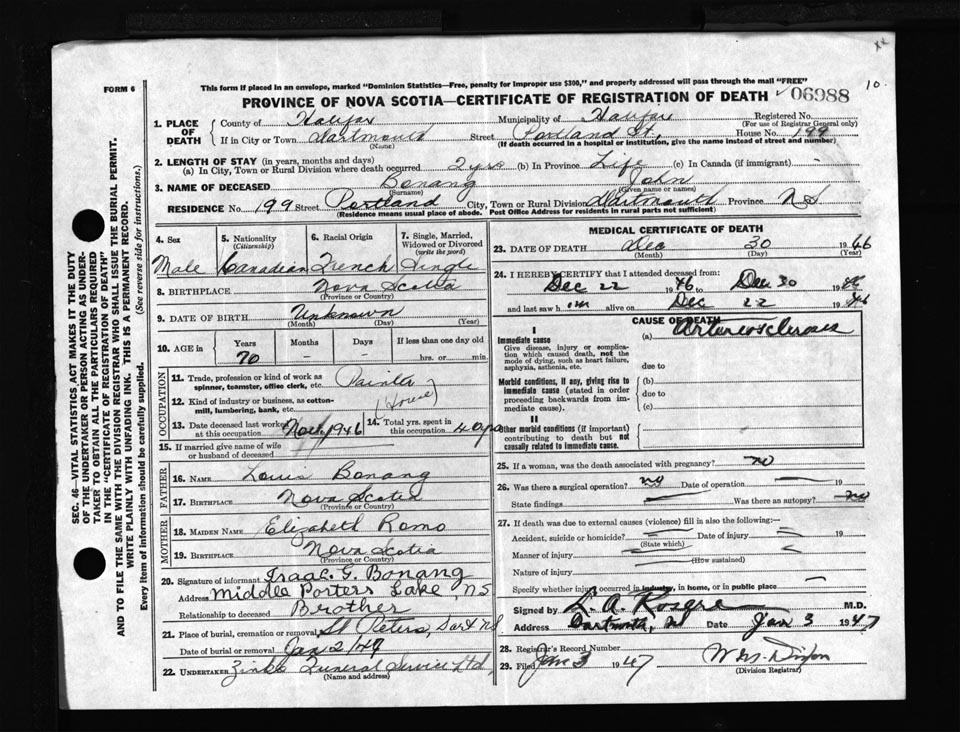 10.
FORM 6
This form if placed in an envelope, marked "Dominion Statistics—Free, penalty for improper use $300," and properly addressed will pass through the mail "FREE"
PROVINCE OF NOVA SCOTIA—CERTIFICATE OF REGISTRATION OF DEATH 06988
SEC. 46—VITAL STATISTICS ACT MAKES IT THE DUTY
OF THE UNDERTAKER OR PERSON ACTING AS UNDER-
TAKER TO OBTAIN ALL THE PARTICULARS REQUIRED
IN THE "CERTIFICATE OF REGISTRATION OF DEATH"
AND TO FILE THE SAME WITH THE DIVISION REGISTRAR WHO SHALL ISSUE THE BURIAL PERMIT.
WRITE PLAINLY WITH UNFADING INK. THIS IS A PERMANENT RECORD.
Every item of information should be carefully supplied. (See reverse side for instructions.)
1. PLACE OF DEATH
County of Halifax Municipality of Halifax Registered No.
(For use of Registrar General only)
If in City or Town Dartmouth Street Portland St. House No. 199
(Name) (If death occurred in a hospital or institution, give the name instead of street and number)
2. LENGTH OF STAY (in years, months and days)
(a) In City, Town or Rural Division where death occurred 2 yrs (b) In Province Life (c) In Canada (if immigrant) -
3. NAME OF DECEASED Bonang John
(Surname) (Given name or names)
RESIDENCE No. 199 Street Portland City, Town or Rural Division Dartmouth Province NS
(Residence means usual place of abode. Post Office Address for residents in rural parts not sufficient)
4. Sex 5. Nationality (Citizenship) 6. Racial Origin 7. Single, Married, Widowed or Divorced (write the word)
Male Canadian French Single
8. BIRTHPLACE Nova Scotia
(Province or Country)
9. DATE OF BIRTH Unknown
(Month) (Day) (Year)
10. AGE in Years Months Days If less than one day old
70 - - hrs. or min.
OCCUPATION
11. Trade, profession or kind of work as spinner, teamster, office clerk, etc. Painter
12. Kind of industry or business, as cotton-mill, lumbering, bank, etc. (House)
13. Date deceased last worked at this occupation Nov 1946 14. Total yrs. spent in this occupation 40 yrs
15. If married give name of wife or husband of deceased
FATHER
16. NAME Louis Bonang
17. BIRTHPLACE Nova Scotia
(Province or Country)
MOTHER
18. MAIDEN NAME Elizabeth Romo
19. BIRTHPLACE Nova Scotia
(Province or Country)
20. Signature of informant Isaac G. Bonang
Address Middle Porters Lake NS
Relationship to deceased Brother
21. Place of burial, cremation or removal St Peters, Dart NS
Date of burial or removal Jan 2/47
22. UNDERTAKER Zinks Funeral Service Ltd
(Name and address)
MEDICAL CERTIFICATE OF DEATH
23. DATE OF DEATH Dec 30 1946
(Month) (Day) (Year)
24. I HEREBY CERTIFY that I attended deceased from:
Dec 22 1946 to Dec 30 1946
and last saw him alive on Dec 22 1946
CAUSE OF DEATH
I
Immediate cause (a) Arteriosclerosis
Give disease, injury or complication which caused death, not the mode of dying, such as heart failure, asphyxia, asthenia, etc. due to
Morbid conditions, if any, giving rise to immediate cause (stated in order proceeding backwards from immediate cause). (b)
due to
(c)
II
Other morbid conditions (if important) contributing to death but not causally related to immediate cause.
25. If a woman, was the death associated with pregnancy? no
26. Was there a surgical operation? no Date of operation — 19
State findings — Was there an autopsy? no
27. If death was due to external causes (violence) fill in also the following:—
Accident, suicide or homicide? Date of injury 19
(State which)
Manner of injury
(How sustained)
Nature of injury
Specify whether injury occurred in industry, in home, or in public place —
Signed by L. A. M.D.
Address Dartmouth, NS Date Jan 3 1947
28. Registrar's Record Number
29. Filed Jan 3 1947
(Division Registrar)